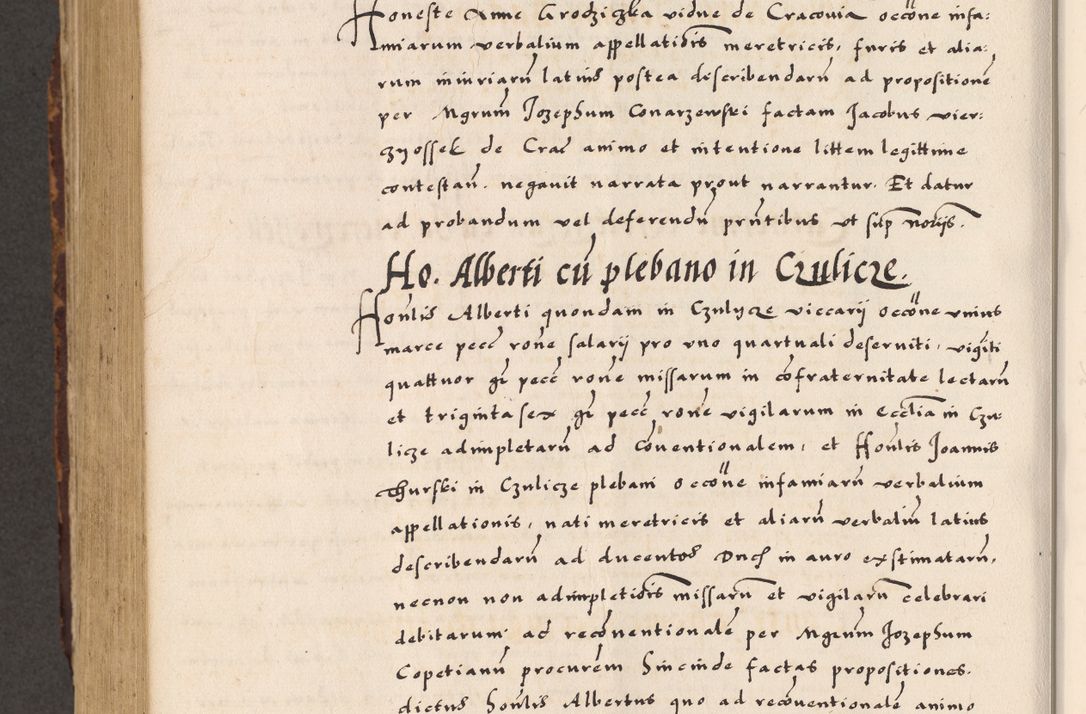 Honeste Anne Grodziczka vidue de Cracovia occõne infa:
miarum verbalium appellatiõis meretricis, furis et alia:
rum iniuriarũ latius postea describendarũ ad propositionẽ
per Mgrum̃ Jozephum Conarzewski factam Jacobus wier:
zyossek de Crac̃ animo et intentione littem legittime
contestañ. negavit narrata prout narrantur. Et datur
ad probandum vel deferendũ prñtibus ut sup̃ noriis̃.
Ho. Alberti cũ plebano in Czulicze.
Hoñlis Alberti quondam in Czulycze viccarij occõne unius
marce pecc̃ rone salarij pro uno quartuali deserviti, vigĩti
quattuor gr̃ pecc̃ rone missarum in cõfraternitate lectarũ
et triginta sex gr̃ pecc̃ rone vigilarum in Ecclia in Czu:
licze adimpletarũ ad cõventionalem, et Hoñlis Joannis
Thurski in Czulicze plebani occõne infamiarũ verbalium
appellationis, nati meretricis et aliarũ verbaliũ latius
describendarũ ad ducentos ducł in auro exstimatarũ,
necnon non adimpletiõis missarũ et vigilarũ celebrari
debitarum ad recõventionalẽ per Mgrum̃ Jozephum
Copetianũ procurẽm hincinde factas propositiones.
dictus hoñlis Albertus quo ad recõventionalẽ animo